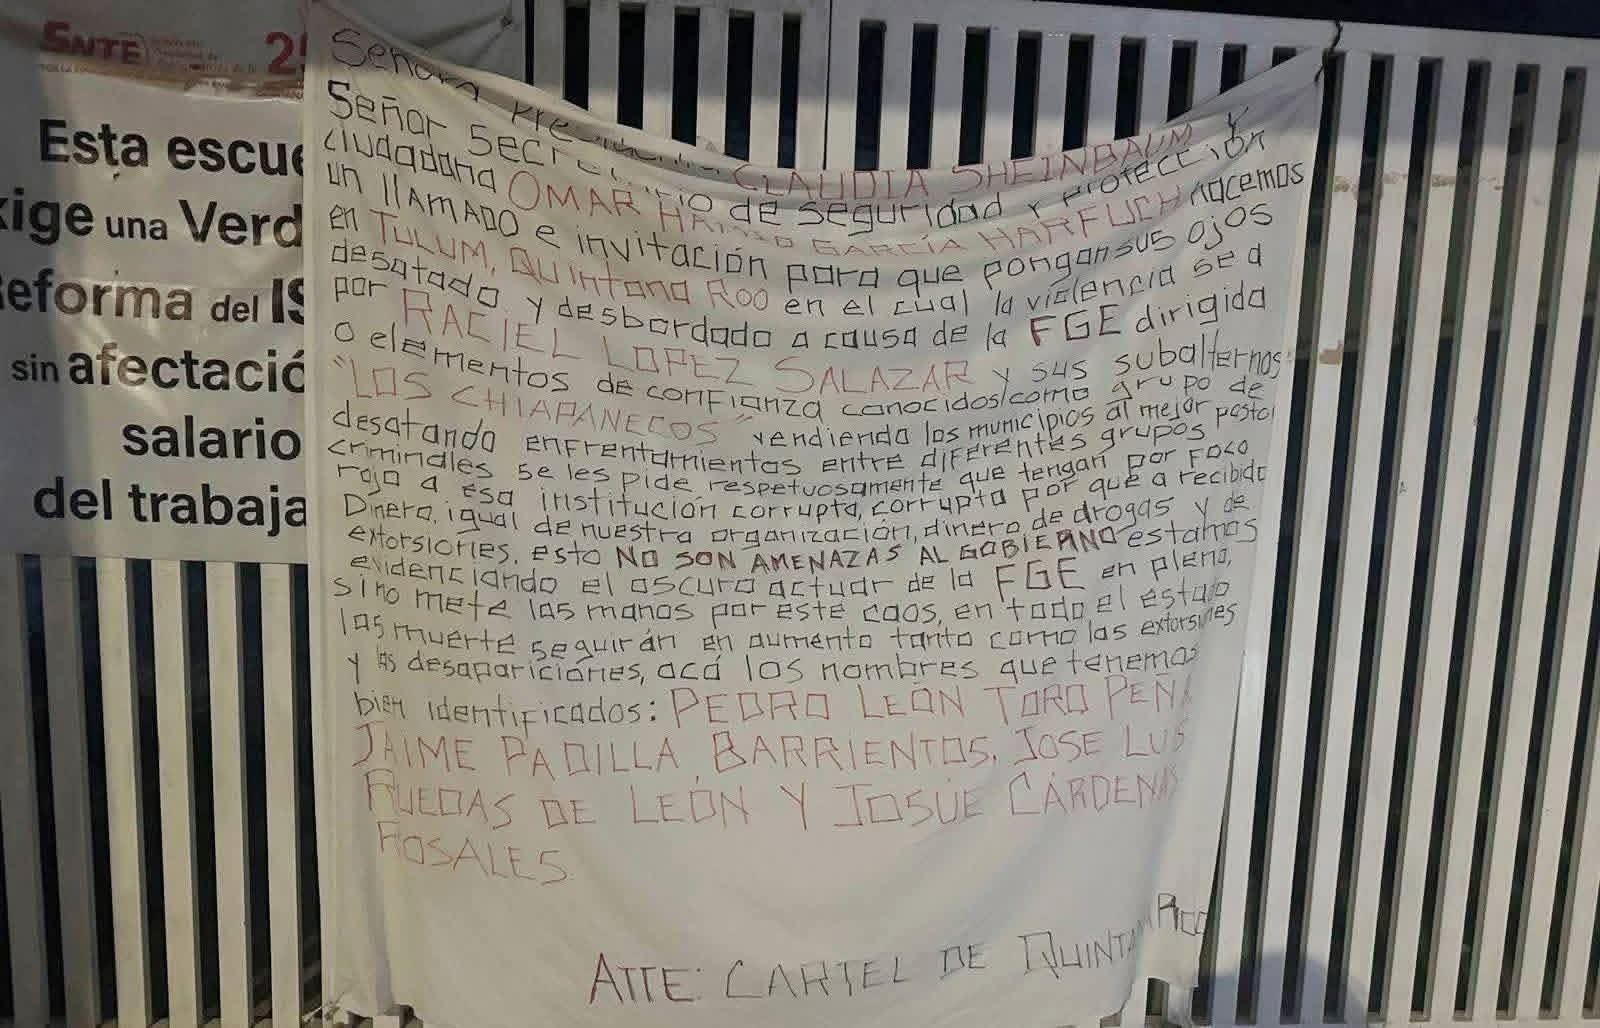 SNTE
Esta escue
xige una Verd
Reforma del IS
sin afectació
salario
del trabaja
Señora Presidenta CLAUDIA SHEINBAUM Y
Señor Secretario de seguridad y Protección
ciudadana OMAR HAMID GARCÍA HARFUCH hacemos
un llAMADO e invitación para que pongan sus ojos
en TULUM, QUintana ROO en el cual la violencia se a
desatado y desbordado a causa de la FGE dirigida
por RACIEL LOPEZ SALAZAR y sus subalternos
o elementos de confianza conocidos como grupo de
"LOS CHIAPANECOS" vendiendo los municipios al mejor postor
desatando enfrentamientos entre diferentes grupos
criminales se les pide respetuosamente que tengan por foco
rojo a esa institución corrupta, corrupta por que a recibido
Dinero, igual de nuestra organización, dinero de drogas y de
extorsiones. esto NO SON AMENAZAS AL GOBIERNO estamos
evidenciando el oscuro actuar de la FGE en pleno,
si no mete las manos por este caos, en todo el estado
las muerte seguirán en aumento tanto como las extorsiones
y las desapariciónes, acá los nombres que tenemos
bien identificados: PEDRO LEÓN TORO PEÑA
JAIME PADILLA BARRIENTOS, JOSE LUIS
RUEDAS DE LEÓN Y JOSUE CÁRDENAS
ROSALES
ATTE: CARTEL DE QUINTANA ROO